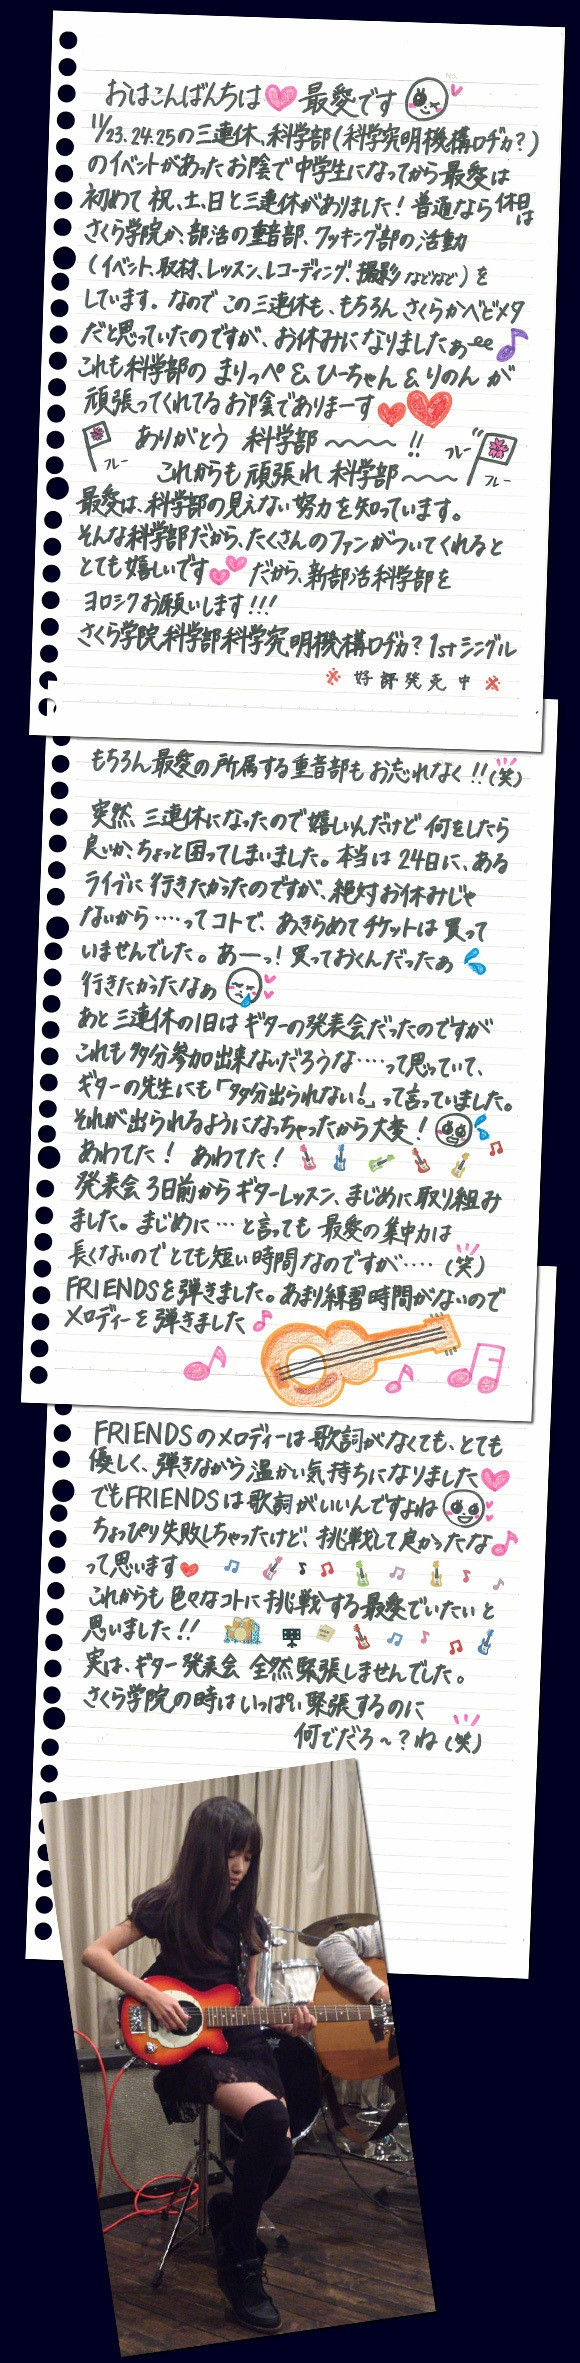 おはこんばんちは 最愛です
11/23.24.25の三連休、科学部(科学究明機構ロヂカ?)
のイベントがあったお陰で中学生になってから最愛は
初めて祝、土、日と三連休がありました!普通なら休日は
さくら学院か、部活の重音部、クッキング部の活動
(イベント、取材、レッスン、レコーディング、撮影などなど)を
しています。なのでこの三連休も、もちろんさくらかベビメタ
だと思っていたのですが、お休みになりましたぁ
これも科学部の まりっぺ & ひーちゃん & りのん が
頑張ってくれてるお陰でありまーす
ありがとう 科学部〜〜〜〜!!
フレー
これからも頑張れ 科学部〜〜〜
フレー
フレー
最愛は、科学部の見えない努力を知っています。
そんな科学部だから、たくさんのファンがついてくれると
とても嬉しいです だから、新部活科学部を
ヨロシクお願いします!!!
さくら学院科学部科学究明機構ロヂカ?1stシングル
※ 好評発売中 ※
もちろん最愛の所属する重音部もお忘れなく!!(笑)
突然 三連休になったので嬉しいんだけど何をしたら
良いか、ちょっと困ってしまいました。本当は24日に、ある
ライブに行きたかったのですが、絶対お休みじゃ
ないから……ってコトで、あきらめてチケットは買って
いませんでした。あーっ!買っておくんだったぁ
行きたかったなぁ
あと三連休の1日はギターの発表会だったのですが
これも多分参加出来ないだろうな……って思っていて、
ギターの先生にも「多分出られない!」って言っていました。
それが出られるようになっちゃったから大変!
あわてた! あわてた!
発表会3日前からギターレッスン、まじめに取り組み
ました。まじめに…と言っても 最愛の集中力は
長くないのでとても短い時間なのですが……(笑)
FRIENDSを弾きました。あまり練習時間がないので
メロディーを弾きました
FRIENDSのメロディーは歌詞がなくても、とても
優しく、弾きながら温かい気持ちになりました
でもFRIENDSは歌詞がいいんですよね
ちょっぴり失敗しちゃったけど、挑戦して良かったな
って思います
これからも色々なコトに挑戦する最愛でいたいと
思いました!!
実は、ギター発表会 全然緊張しませんでした。
さくら学院の時はいっぱい緊張するのに
何でだろ〜?ね(笑)